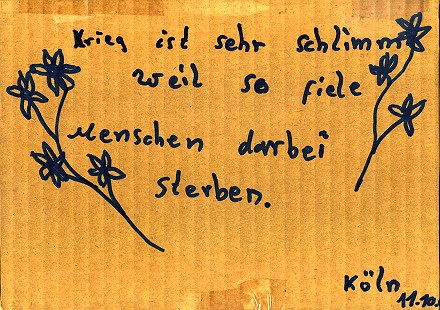 Krieg ist sehr schlimm
weil so fiele
Menschen darbei
sterben.
Köln
11.10.